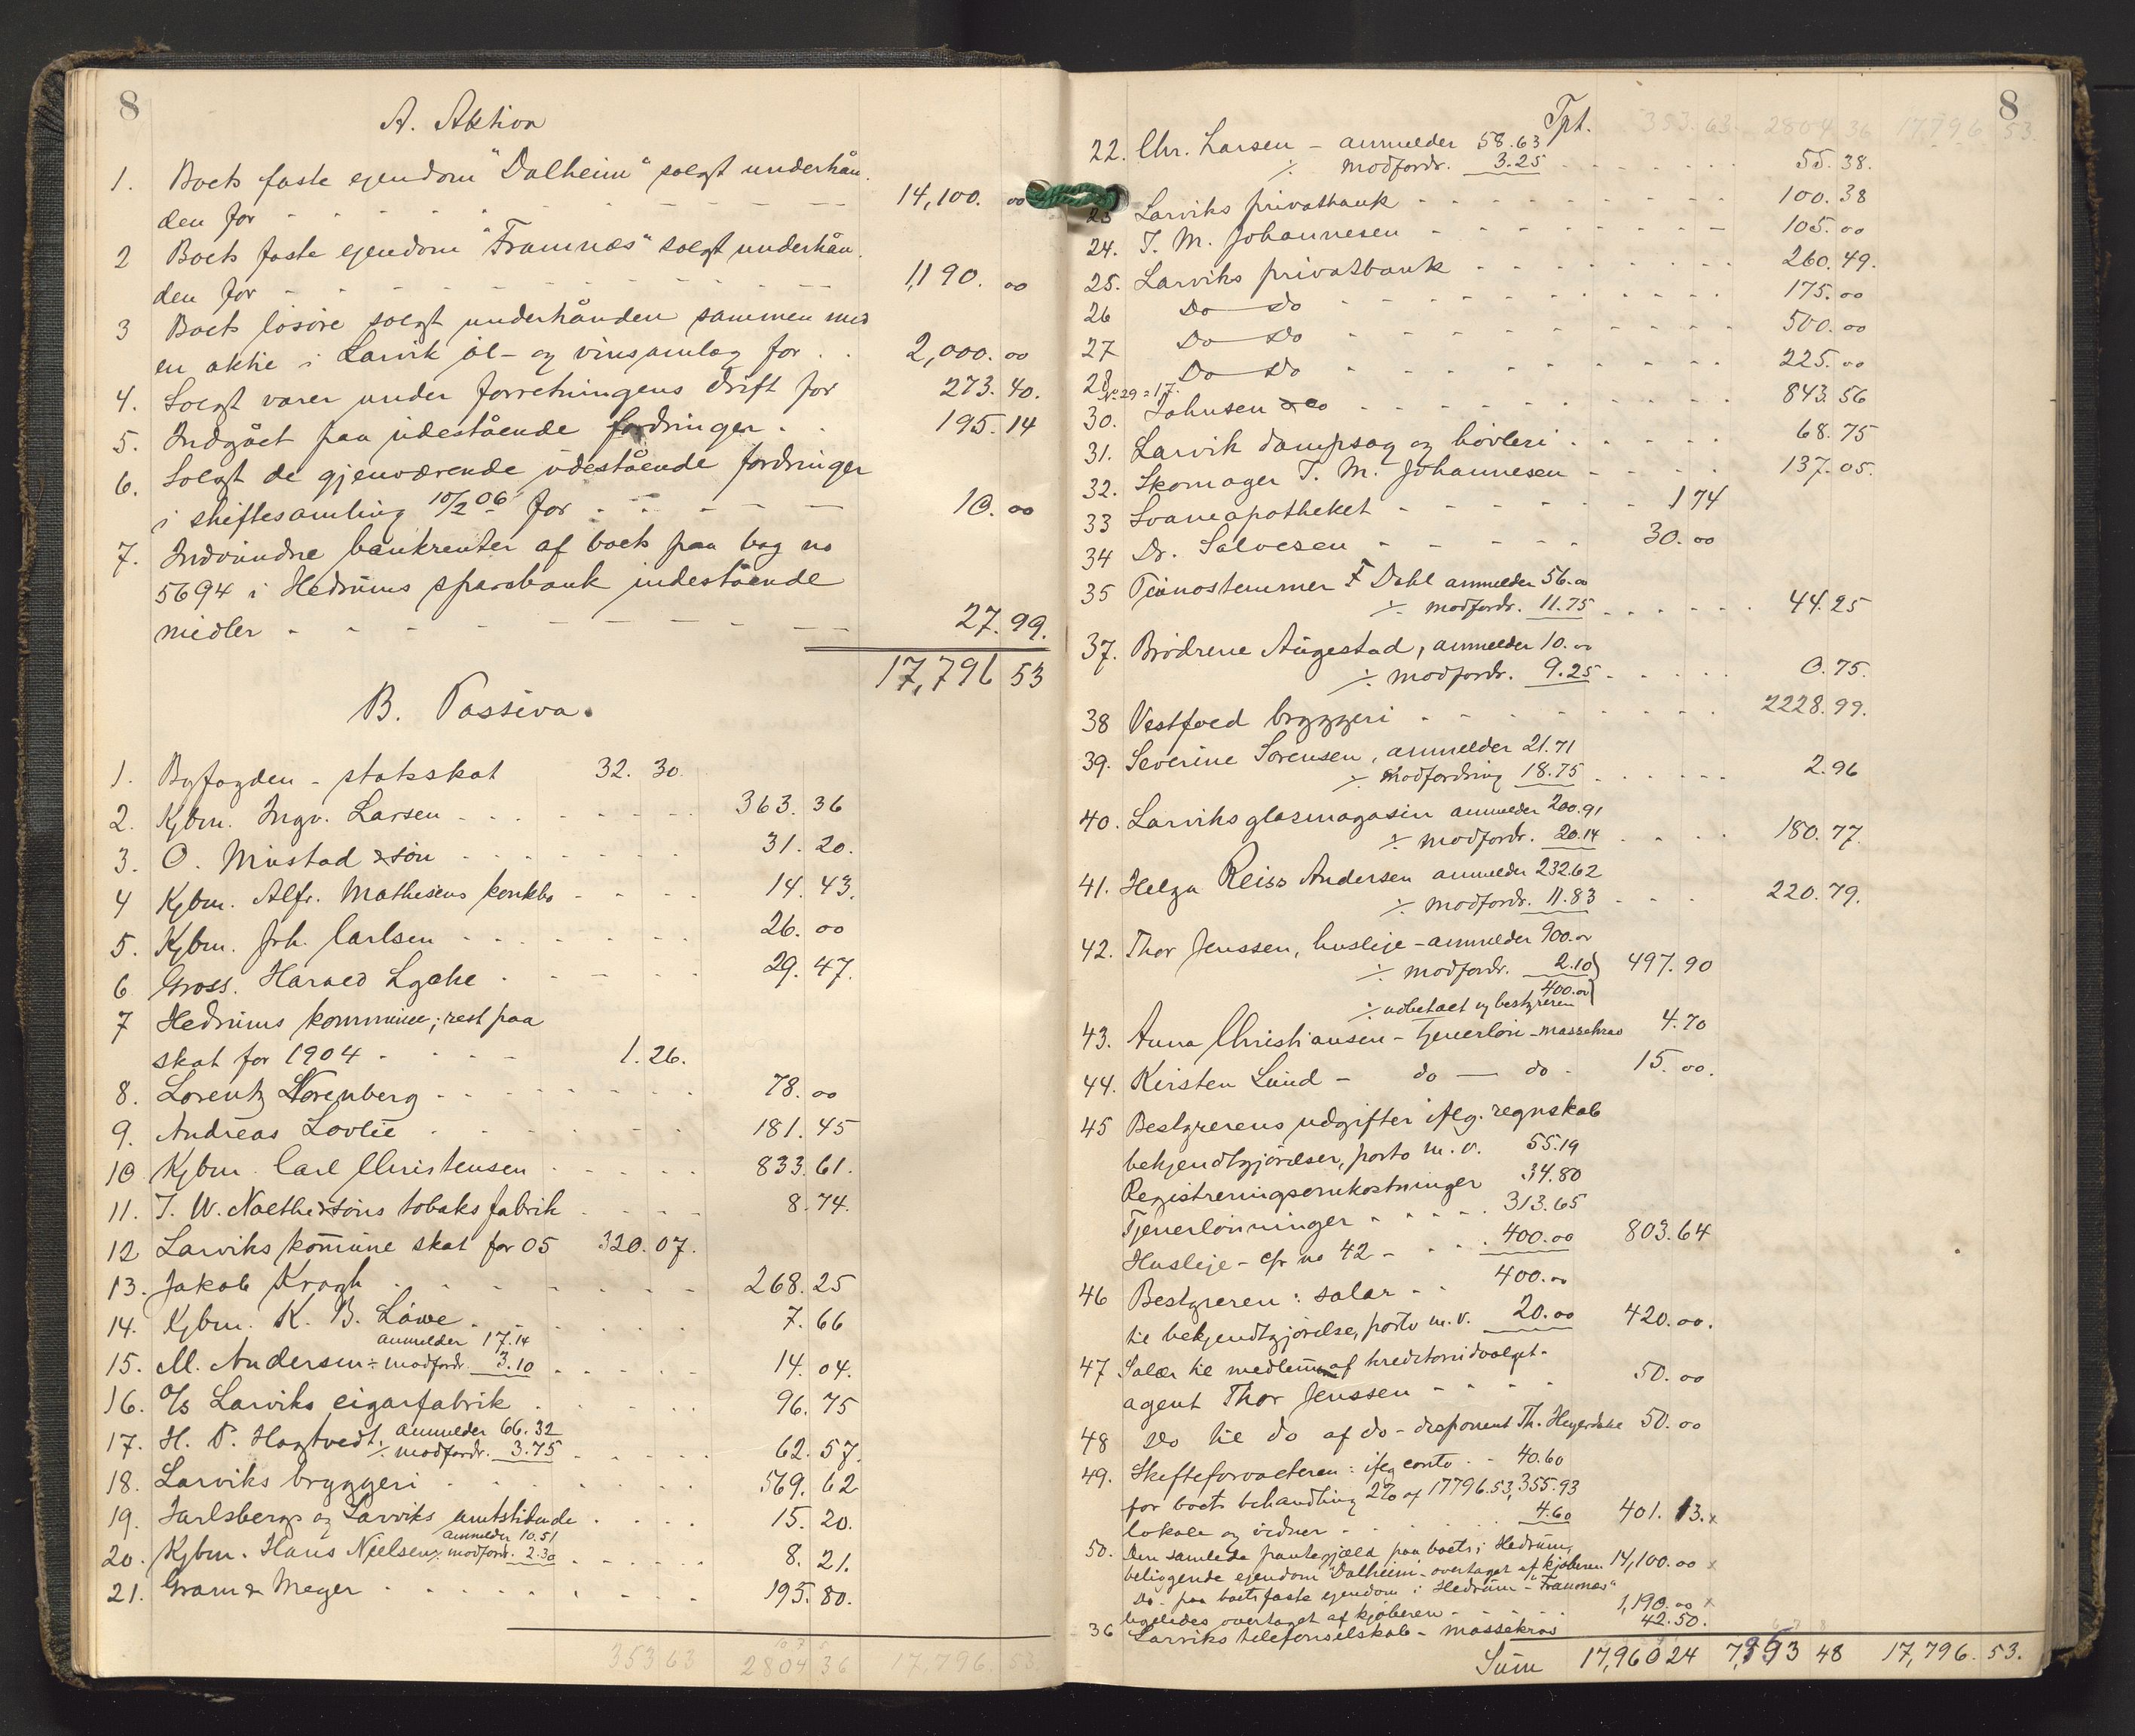 8
A. Aktiva
1. Boets faste ejendom "Dalheim" solgt underhån-
den for - - - 14,100. 00
2 Boets faste ejendom "Framnæs" solgt underhån-
den for - - - 1,190. 00
3 Boets løsøre solgt underhånden sammen med
en aktie i Larvik øl- og vinsamlag for . . 2,000. 00
4. Solgt varer under forretningens drift for 273. 40.
5. Indgået paa udestående fordringer . . 195. 14
6. Solgt de gjenværende udestående fordringer
i skiftesamling 10/2 06 for - - - 10. 00
7. Indvundne bankrenter af boets paa bog no
5694 i Hedrums sparebank indestående
midler - - - 27. 99.
17,796 53
B. Passiva.
1. Byfogden - statsskat 32. 30.
2. Kjbm. Ingv. Larsen - - - 363. 36
3. O. Mustad & søn - - - 31. 20.
4 Kjbm. Alfr. Mathesens konkbo - - - 14. 43.
5. Kjbm. Joh. Carlsen - - - 26. 00
6 Gross. Harald Lyche - - - 29. 47.
7 Hedrums kommune; rest paa
skat for 1904 - - - 1. 26.
8. Lorentz Norenberg - - - 78. 00
9. Andreas Løvlie - - - 181. 45
10 Kjbm. Carl Christensen - - - 833. 61.
11. T. W. Noeth & søns tobaksfabrik - - - 8. 74.
12 Larviks komune skat for 05 320. 07.
13. Jakob Kragh - - - 268. 25
14. Kjbm. K. B. Løwe - - - 7. 66
anmelder 17.14
15. M. Andersen ÷ modfordr. 3.10 - - - 14. 04.
16. A/S Larviks cigarfabrik - - - 96. 75
17. H. P. Hagtvedt, anmelder 66.32
÷ modfordr. 3.75 - - - 62. 57.
18. Larviks bryggeri - - - 569. 62
19. Jarlsberg og Larviks amtstidende - - - 15. 20.
anmelder 10.51
20. Kjbm. Hans Nielsen ÷ modfordr. 2.30 - - - 8. 21.
21. Gram & Meyer - - - 195. 80.
353 63 2804 36 17,796. 53
8
Tpt. 353. 63. 2804. 36 17,796 53.
22. Chr. Larsen - anmelder 58.63
÷ modfordr. 3.25 - - - 55. 38.
23 Larviks privatbank - - - 100. 38
24. T. M. Johannesen - - - 105. 00
25. Larviks privatbank - - - 260. 49.
26 Do do - - - 175. 00
27 Do do - - - 500. 00
28 Do do - - - 225. 00
No 29 = 17.
30. Johnsen & co - - - 843. 56
31. Larvik dampsag og høvleri - - - 68. 75
32. Skomager T. M. Johannesen - - - 137. 05.
33 Svaneapotheket - - - 1 74
34 Dr. Salvesen - - - 30. 00
35 Pianostemmer F Dahl anmelder 56.00
÷ modfordr. 11.75 - - - 44. 25
37. Brødrene Augestad, anmelder 10.00
÷ modfordr. 9.25 - - - 0. 75.
38 Vestfold bryggeri - - - 2228. 99.
39. Severine Sørensen, anmelder 21.71
÷ modfordring 18.75 - - - 2. 96
40. Larviks glasmagasin anmelder 200.91
÷ modfordr. 20.14 - - - 180. 77.
41. Helga Reiss Andersen anmelder 232.62
÷ modfordr. 11.83 - - - 220. 79.
42. Thor Jenssen, husleje - anmelder 900.00
÷ modfordr. 2.10 497. 90
÷ udbetalt af bestyreren 400.00
43. Anna Christiansen - tjenerløn - massekrav 4. 70
44. Kirsten Lund - do - do - 15. 00.
45 Bestyrerens udgifter iflg. regnskab
bekjendtgjørelser, porto m. v. 55.19
Registreringsomkostninger 34.80
Tjenerlønninger - - - 313.65
Husleje - cfr no 42 - - - 400.00 803. 64
46 Bestyreren: salær - - 400.00
til bekjendtgjørelse, porto m. v. 20.00 420. 00.
47 Salær til medlem af kreditorudvalget-
agent Thor Jenssen - - - 50. 00
48 Do til do af do - disponent Th. Heyerdahl 50. 00
49. Skifteforvalteren: iflg conto - - 40.60
for boets behandling 2% af 17796.53, 355.93
lokale og vidner - - - 4.60 401. 13. x
50. Den samlede pantegjæld paa boets i Hedrum
beliggende ejendom "Dalheim" - overtaget af kjøberen 14,100. 00 x
Do - paa boets faste ejendom i Hedrum - "Framnæs"
ligeledes overtaget af kjøberen - 1,190. 00 x
36 Larviks telefonselskab - massekrav 42. 50.
Sum 17,960 24 48 17,796. 53.